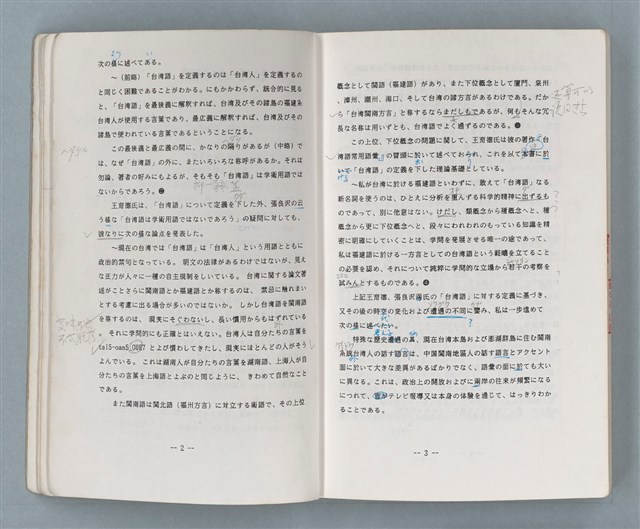 次の様に述べてある。
～（前略）「台湾語」を定義するのは「台湾人」を定義するの
と同じく困難であることがわかる。にもかかわらず、統合的に見る
と、「台湾語」を最狭義に解釈すれば、台湾及びその諸島の福建系
台湾人が使用する言葉であり、最広義に解釈すれば、台湾及びその
諸島で使われている言葉であるということになる。
この最狭義と最広義の間に、かなりの隔りがあるが（中略）で
は、なぜ「台湾語」の外に、またいろいろな称呼があるか。それは
勿論、著者の好みにもよるが、そもそも「台湾語」は学術用語では
ないからであろう。❷
王育徳氏は、「台湾語」について定義を下した外、張良沢の云
う様な「台湾語は学術用語ではないであろう」の疑問に対しても、
彼なりに次の様な論点を発表した。
～現在の台湾では「台湾語」は「台湾人」という用語とともに
政治的禁句となっている。 明文の法律があるわけではないが、見え
な圧力が人々に一種の自主規制をしいている。 台湾に関する論文著
述がことさらに閩南語とか福建語とか称するのは、 禁忌に触れまい
とする考慮に出る場合が多いのではないか。 しかし台湾語を閩南語
を称するのは、 現実にそぐわないし、長い慣用からもはずれてい
る。 それに学問的にも正確とはいえない。台湾人は自分たちの言葉を
tai5-oan5 0087 とよび慣わしてきたし、現実にはほとんどの人がそう
よんでいる。 これは湖南人が自分たちの言葉を湖南語、上海人が自
分たちの言葉を上海語とよぶのと同じように、 きわめて自然なこと
である。
また閩南語は閩北語（福州方言）に対立する術語で、その上位
-- 2 --
概念として閩語（福建語）があり、また下位概念として廈門、泉州
、漳州、潮州、海口、そして台湾の諸方言があるわけである。だか
ら「台湾閩南方言」と称するならまだしもであるが、何もそんな冗
長な名称は用いずとも、台湾語でよく通ずるのである。❸
この上位、下位概念の問題に関して、王育徳氏は彼の著作「台
湾語常用語彙」の冒頭に於いて述べており、これを以て本書に於
いて「台湾語」の定義を下した理論基礎としている。
～私が台湾に於ける福建語といわずに、敢えて「台湾語」なる
新名詞を使うのは、ひとえに分析を重んずる科学的精神に出ずるも
のであって、別に他意はない。けだし、類概念から種概念へと、種
概念から更に下位概念へと、段々にわれわれのもっている知識を精
密に明確にしていくことは、学問を発展させる唯一の途であって、
私は福建語に於ける一方言としての台湾語という範疇を立てること
の必要を認め、それについて純粋に学問的な立場から若干の考察を
試みんとするものである。❹
上記王育徳、張良沢両氏の「台湾語」に対する定義に基づき、
又その後の時空の変化および遭遇の不同に鑒み、私は一歩進めて
次の様に述べたい。
特殊な歴史遭遇の為、現在台湾本島および澎湖群島に住む閩南
系統台湾人の話す語言は、中国閩南地區人の話す語言とアクセント
面に於いて大きな差異があるばかりでなく、語彙の面に於ても大い
に異なる。これは、政治上の開放および両岸の往来が頻繁になる
につれて、皆がテレビ報導又は本身の体験を通じて、はっきりわか
ることである。
-- 3 --